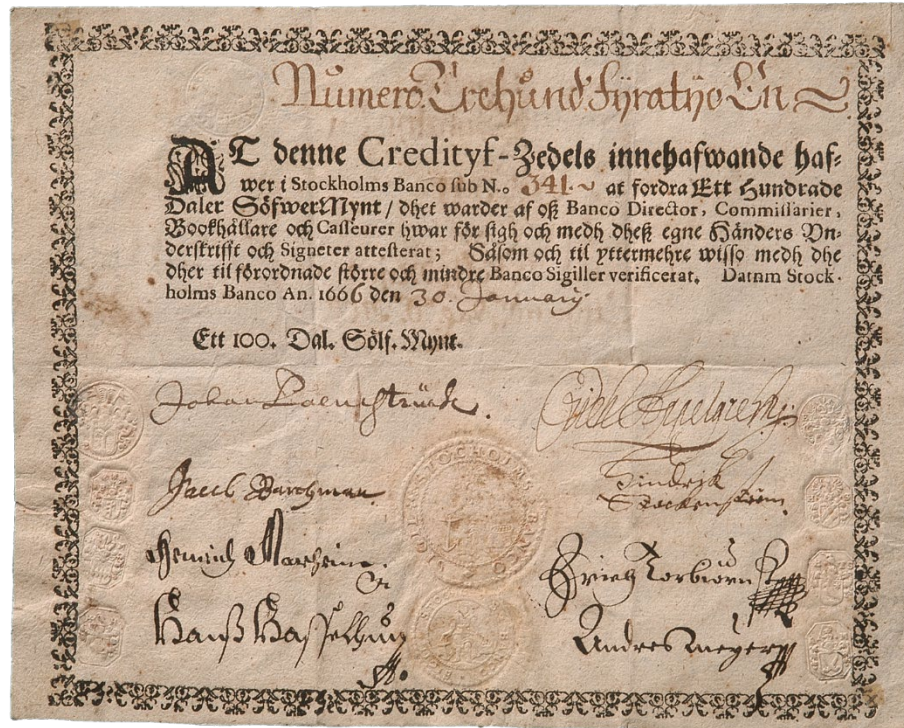 Numero Trehund Fyratyo En
AT denne Credityf-Zedels innehafwande haf-
wer i Stockholms Banco sub N.o 341. at fordra Ett Hundrade
Daler SöfwerMynt / dhet warder af oß Banco Director, Commissarier,
Bookhållare och Casseurer hwar för sigh och medh dheß egne Händers Vn-
derskrifft och Signeter attesterat; Såsom och til yttermehre wisso medh dhe
dher til förordnade större och mindre Banco Sigiller verificerat. Datum Stock-
holms Banco An. 1666 den 30. January.
Ett 100. Dal. Sölf. Mynt.
Johan
Jacob Barchman
Hindrik
Stockenström
Heinrich
Erich Torbiörn
Hanß Hasselhun
Andres Meyer
STOCHOLMS BANCO